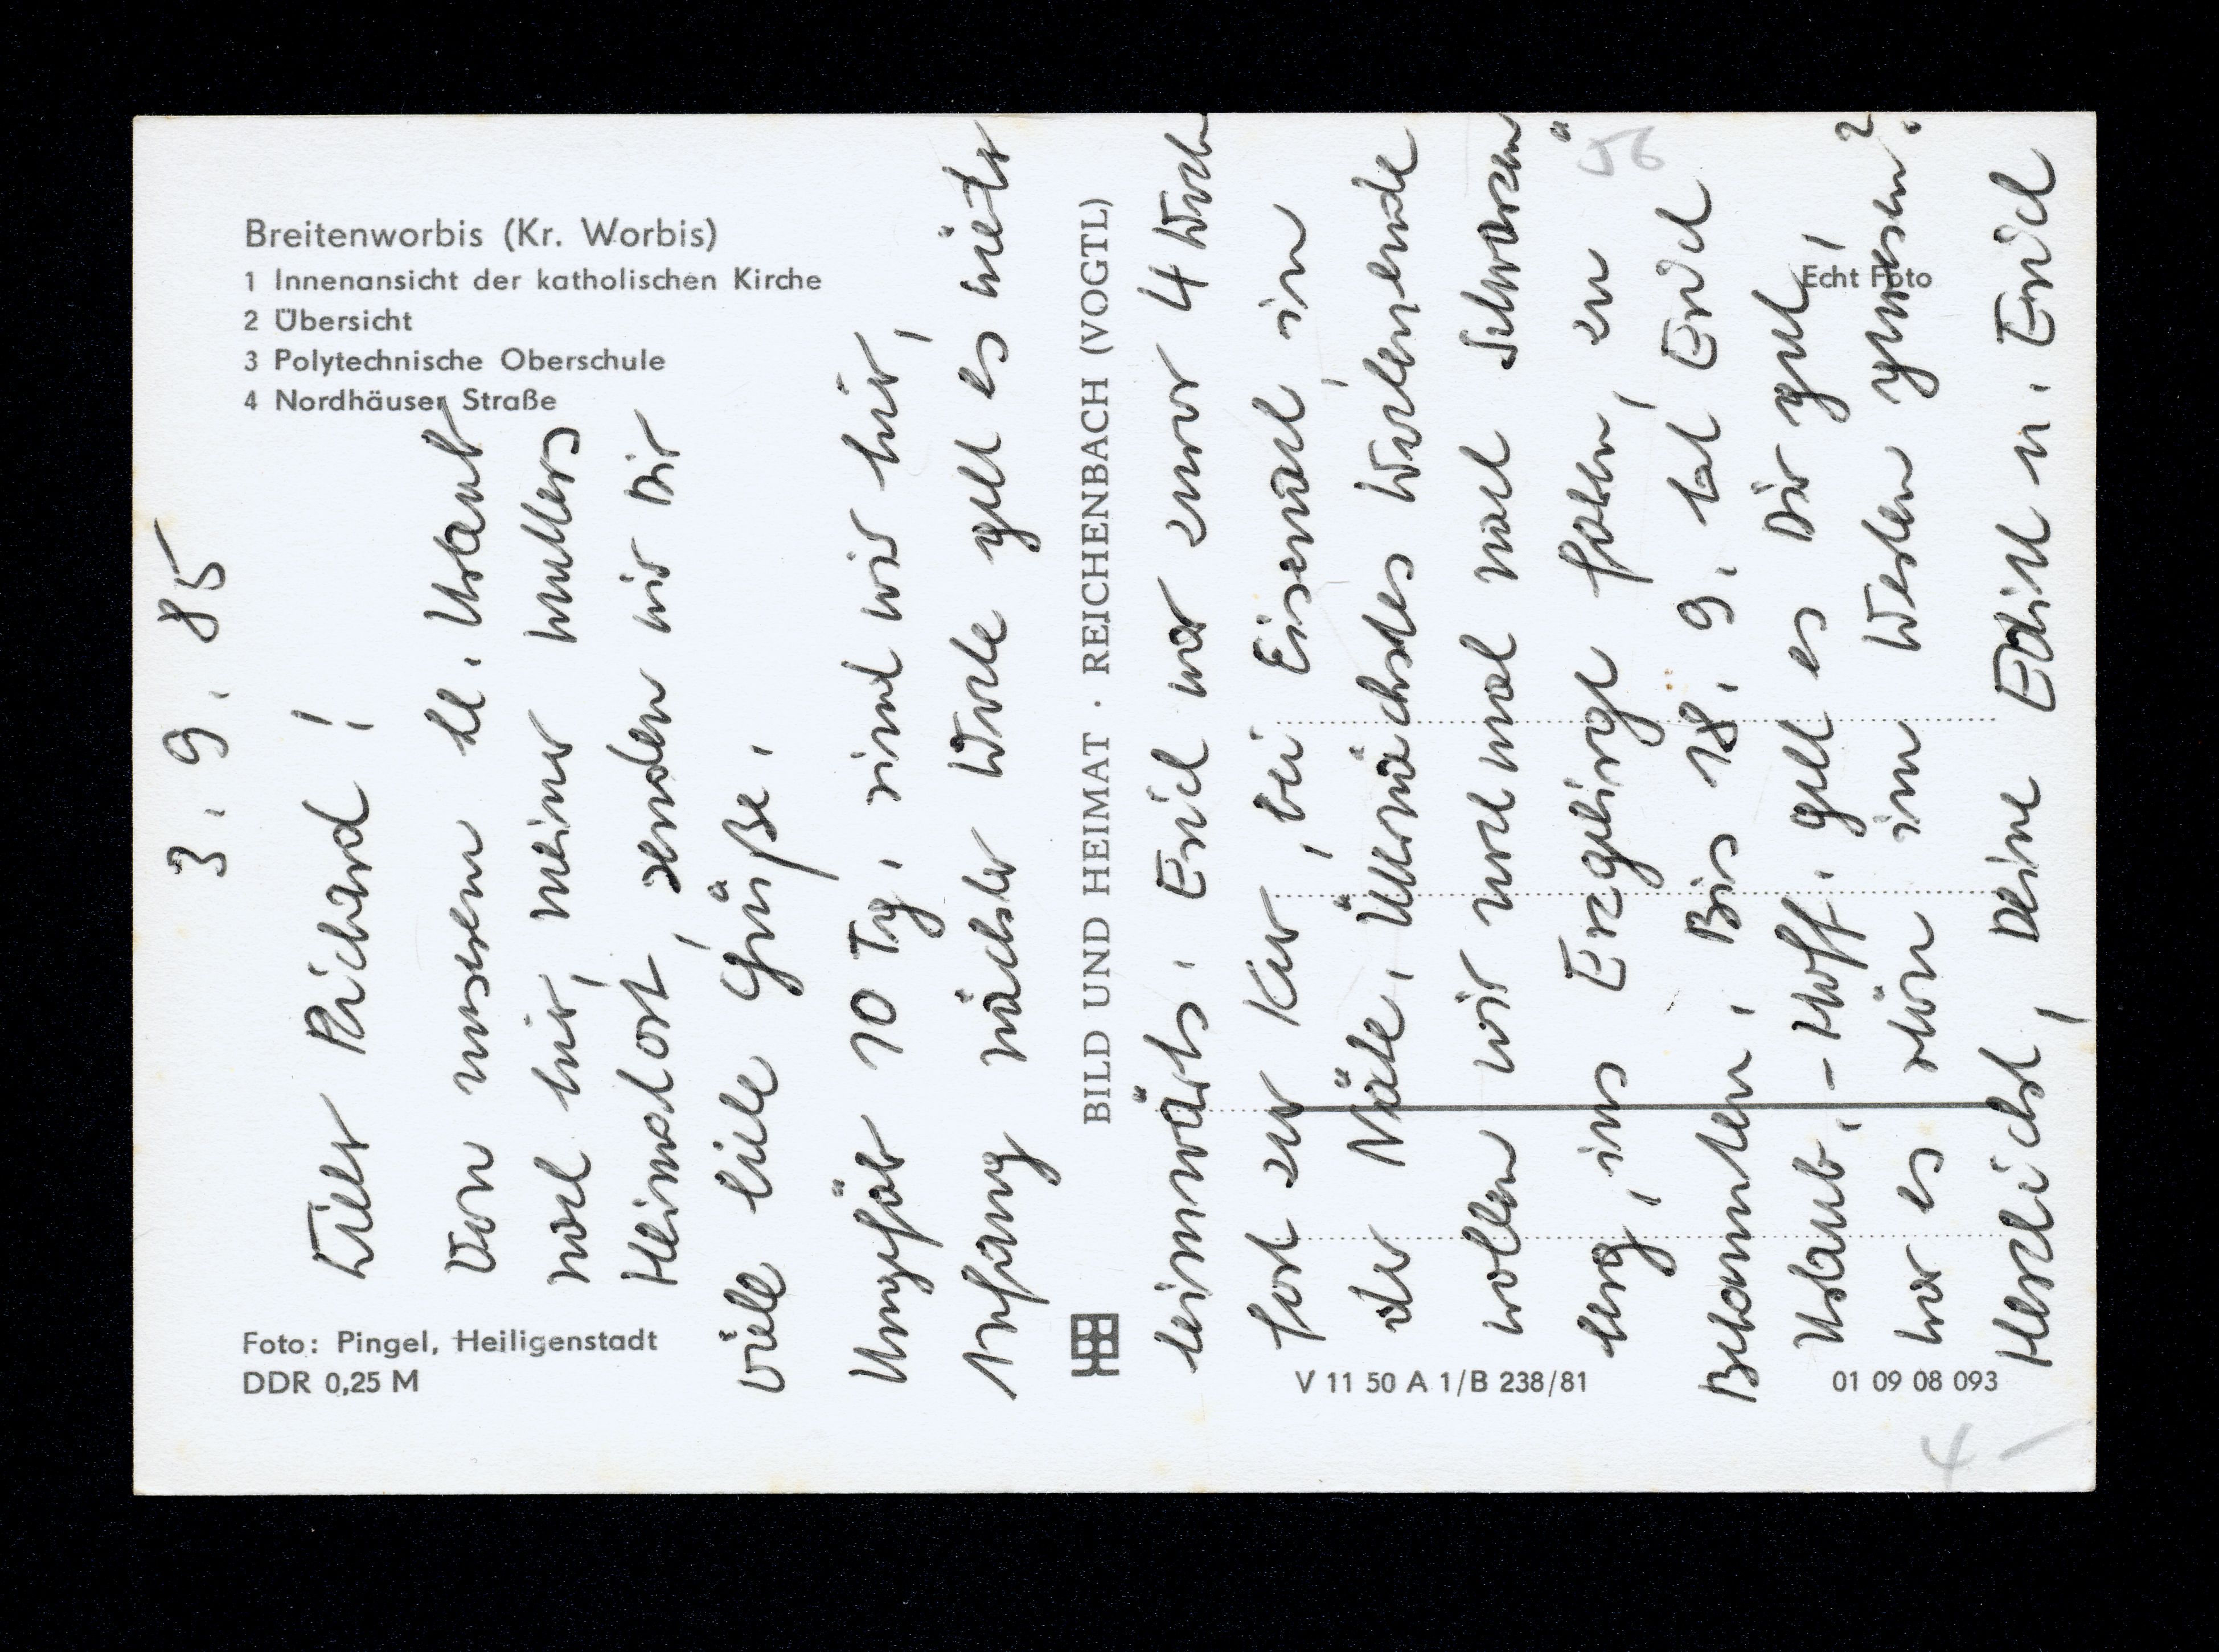 Breitenworbis (Kr. Worbis)
1 Innenansicht der katholischen Kirche
2 Übersicht
3 Polytechnische Oberschule
4 Nordhäuser Straße
Foto: Pingel, Heiligenstadt
DDR 0,25 M
BILD UND HEIMAT · REICHENBACH (VOGTL)
V 11 50 A 1/B 238/81
01 09 08 093
Echt Foto
56
4 –
3. 9. 85
Lieber Richard!
Von unserem kl. Urlaub
nach hier, meiner Mutters
Heimatort, senden wir Dir
viele liebe Grüße.
Ungefähr 10 Tg. sind wir hier,
Anfang nächster Woche geht es wieder
heimwärts. Erich war zuvor 4 Woch
fort zur Kur, bei Eisenach, in
der Nähe. Übernächstes Wochenende
wollen wir noch mal nach Schwarzen
berg, ins Erzgebirge fahren, zu
Bekannten. Bis 18. 9. hat Erich
Urlaub. – Hoff. geht es Dir gut,
war es schön im Westen gewesen?
Herzlichst, Deine Edith u. Erich